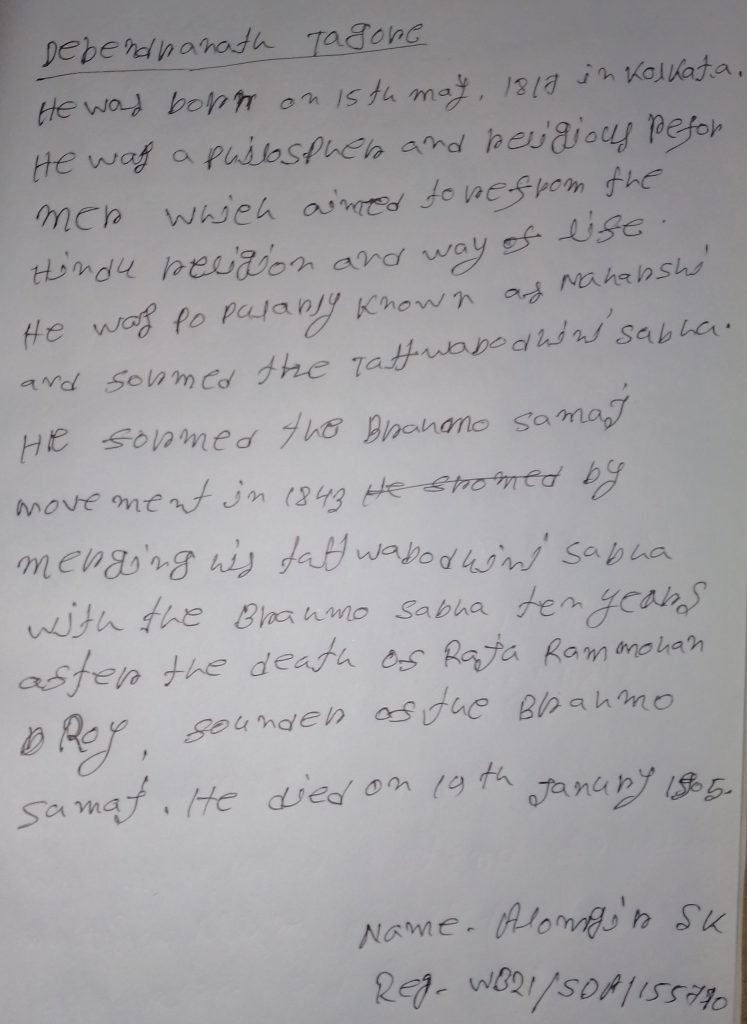 Debendranath Tagore
He was born on 15th may, 1817 in Kolkata.
He was a philospher and religious refor
mer which aimed to refrom the
Hindu religion and way of life.
He was po pularly known as Maharshi
and formed the Tattwabodhini sabha.
He formed the Brahmo samaj
movement in 1843 He fromed by
merging his tattwabodhini sabha
with the Brahmo sabha ten years
after the death of Raja Rammohan
Roy, founder of the Brahmo
samaj. He died on 19th Janury 1905.
Name - Alomgir SK
Reg - WB21/SDA/155770